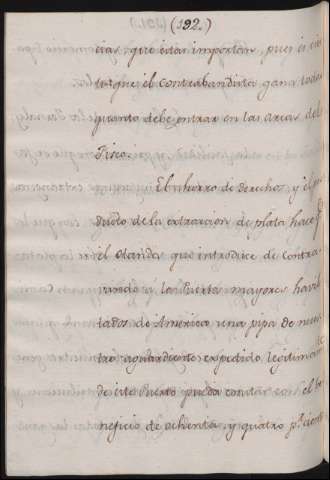 (192.)
cias, que estas importan, pues es cier
to que el Contrabandista gana todo
quanto debe entrar en las arcas del
Fisco.
El ahorro de derechos, y el pro
ducto de la extraccion de plata hace q.e
el Olandes que introduce de contra
vando á los Puertos mayores havili
tados de America una pipa de nues
tro aguardiente expedido legitimam.te
de este Puerto pueda contar con el be
neficio de ochenta, y quatro p.s